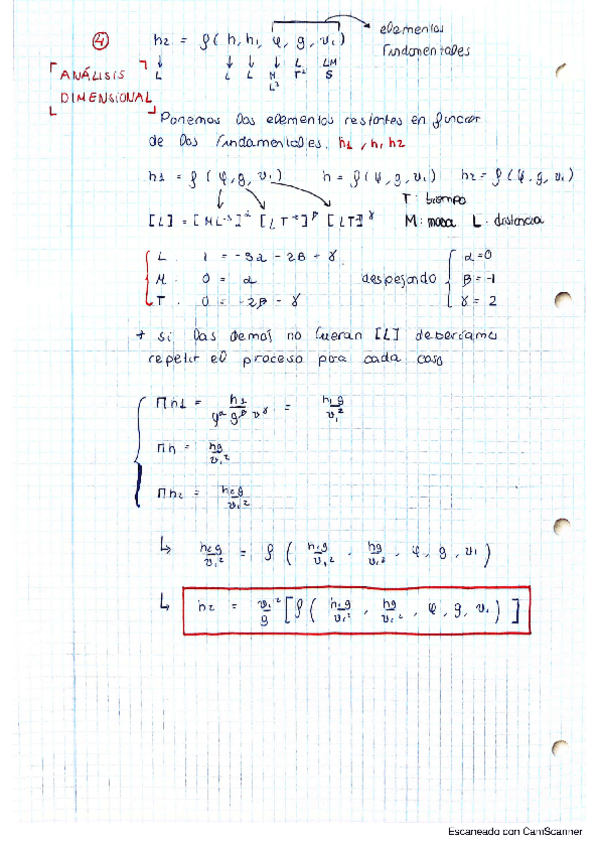 4 h2 = f( h, h1, φ, g, v1) → elementos
fundamentales
ANÁLISIS
DIMENSIONAL
↓ ↓ ↓ ↓ ↓ ↓
L L L M L LM
L³ T² S
Ponemos los elementos restantes en función
de los fundamentales. h1, h, h2
h1 = f (φ, g, v1) h = f(φ, g, v1) h2 = f(φ, g, v1)
T: tiempo
[L] = [ML⁻³]^α [LT⁻²]^β [LT⁻¹]^γ M: masa L: distancia
L. 1 = -3α - 2β - γ α = 0
M. 0 = α despejando β = -1
T. 0 = -2β - γ γ = 2
* si las demas no fueran [L] deberiamos
repetir el proceso para cada caso
Πh1 = h1 / φ^α g^β v^γ = h1g / v1²
Πh = hg / v1²
Πh2 = h2g / v1²
↳ h2g / v1² = f ( h1g / v1² , hg / v1² , φ, g, v1)
↳ h2 = v1² / g [ f ( h1g / v1² , hg / v1² , φ, g, v1) ]
Escaneado con CamScanner